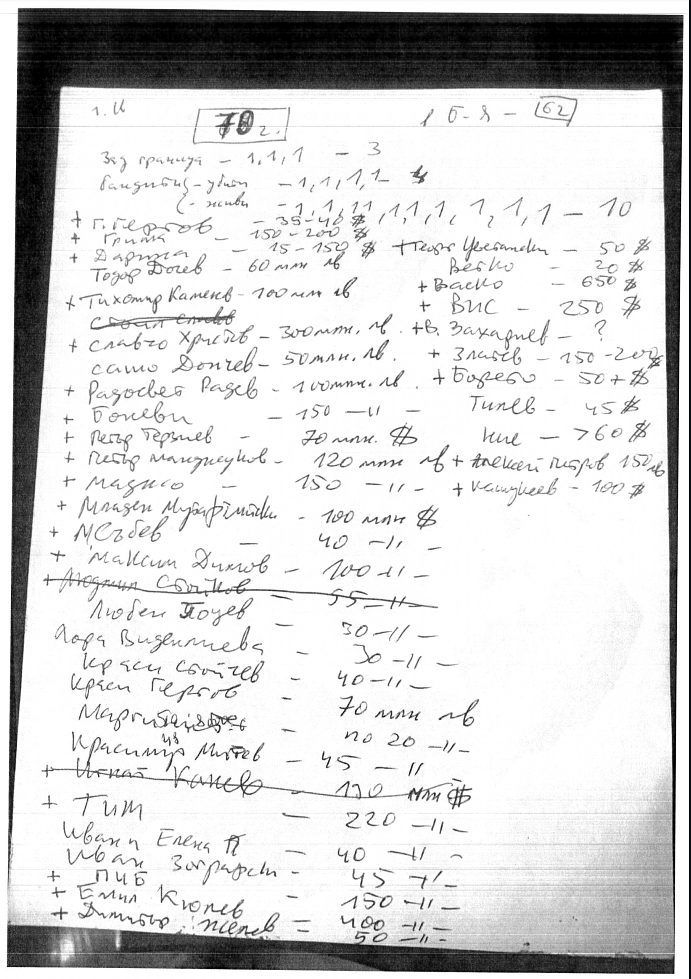 1. И 70 г. 1 б-я - 62
Зад граница - 1,1,1 - 3
бандити - убити - 1,1,1,1 - 4
- живи - 1,1,1,1,1,1,1,1,1,1 - 10
+ Г. Гергов - 35-40 $
+ Гриша - 150-200 $
+ Дарина - 15-150 $ + Георги Цветански - 50 $
Тодор Дочев - 60 млн лв Ветко - 20 $
+ Васко - 650 $
+ Тихомир Каменов - 100 млн лв + ВИС - 250 $
Стоил Славов
+ Славчо Христов - 300 млн. лв. + В. Захариев - ?
Сашо Дончев - 50 млн. лв. + Златев - 150-200 $
+ Радосвет Радев - 100 млн. лв. + Борето - 50+ $
+ Боневи - 150 -"- Типев - 45 $
+ Петър Терзиев - 70 млн. $ Ние - >60 $
+ Петър Манджуков - 120 млн лв + Алексей Петров 150 лв
+ Маджо - 150 -"- + Кашукеев - 100 $
+ Младен - 100 млн $
+ - 40 -"-
+ Максим Димов - 100 -"-
+ Людмил Стойков - 55 -"-
Любен - 30 -"-
Лора Виделиева - 30 -"-
Краси Стойчев - 40 -"-
Краси Гергов - 70 млн лв
- по 20 -"-
Красимир - 45 -"-
+ Игнат Канев - 130 млн $
+ ТИМ - 220 -"-
Иван и Елена П - 40 -"-
Иван Зографски - 45 -"-
+ ПИБ - 150 -"-
+ Емил Кюлев - 400 -"-
+ Димитър Желев = 50 -"-